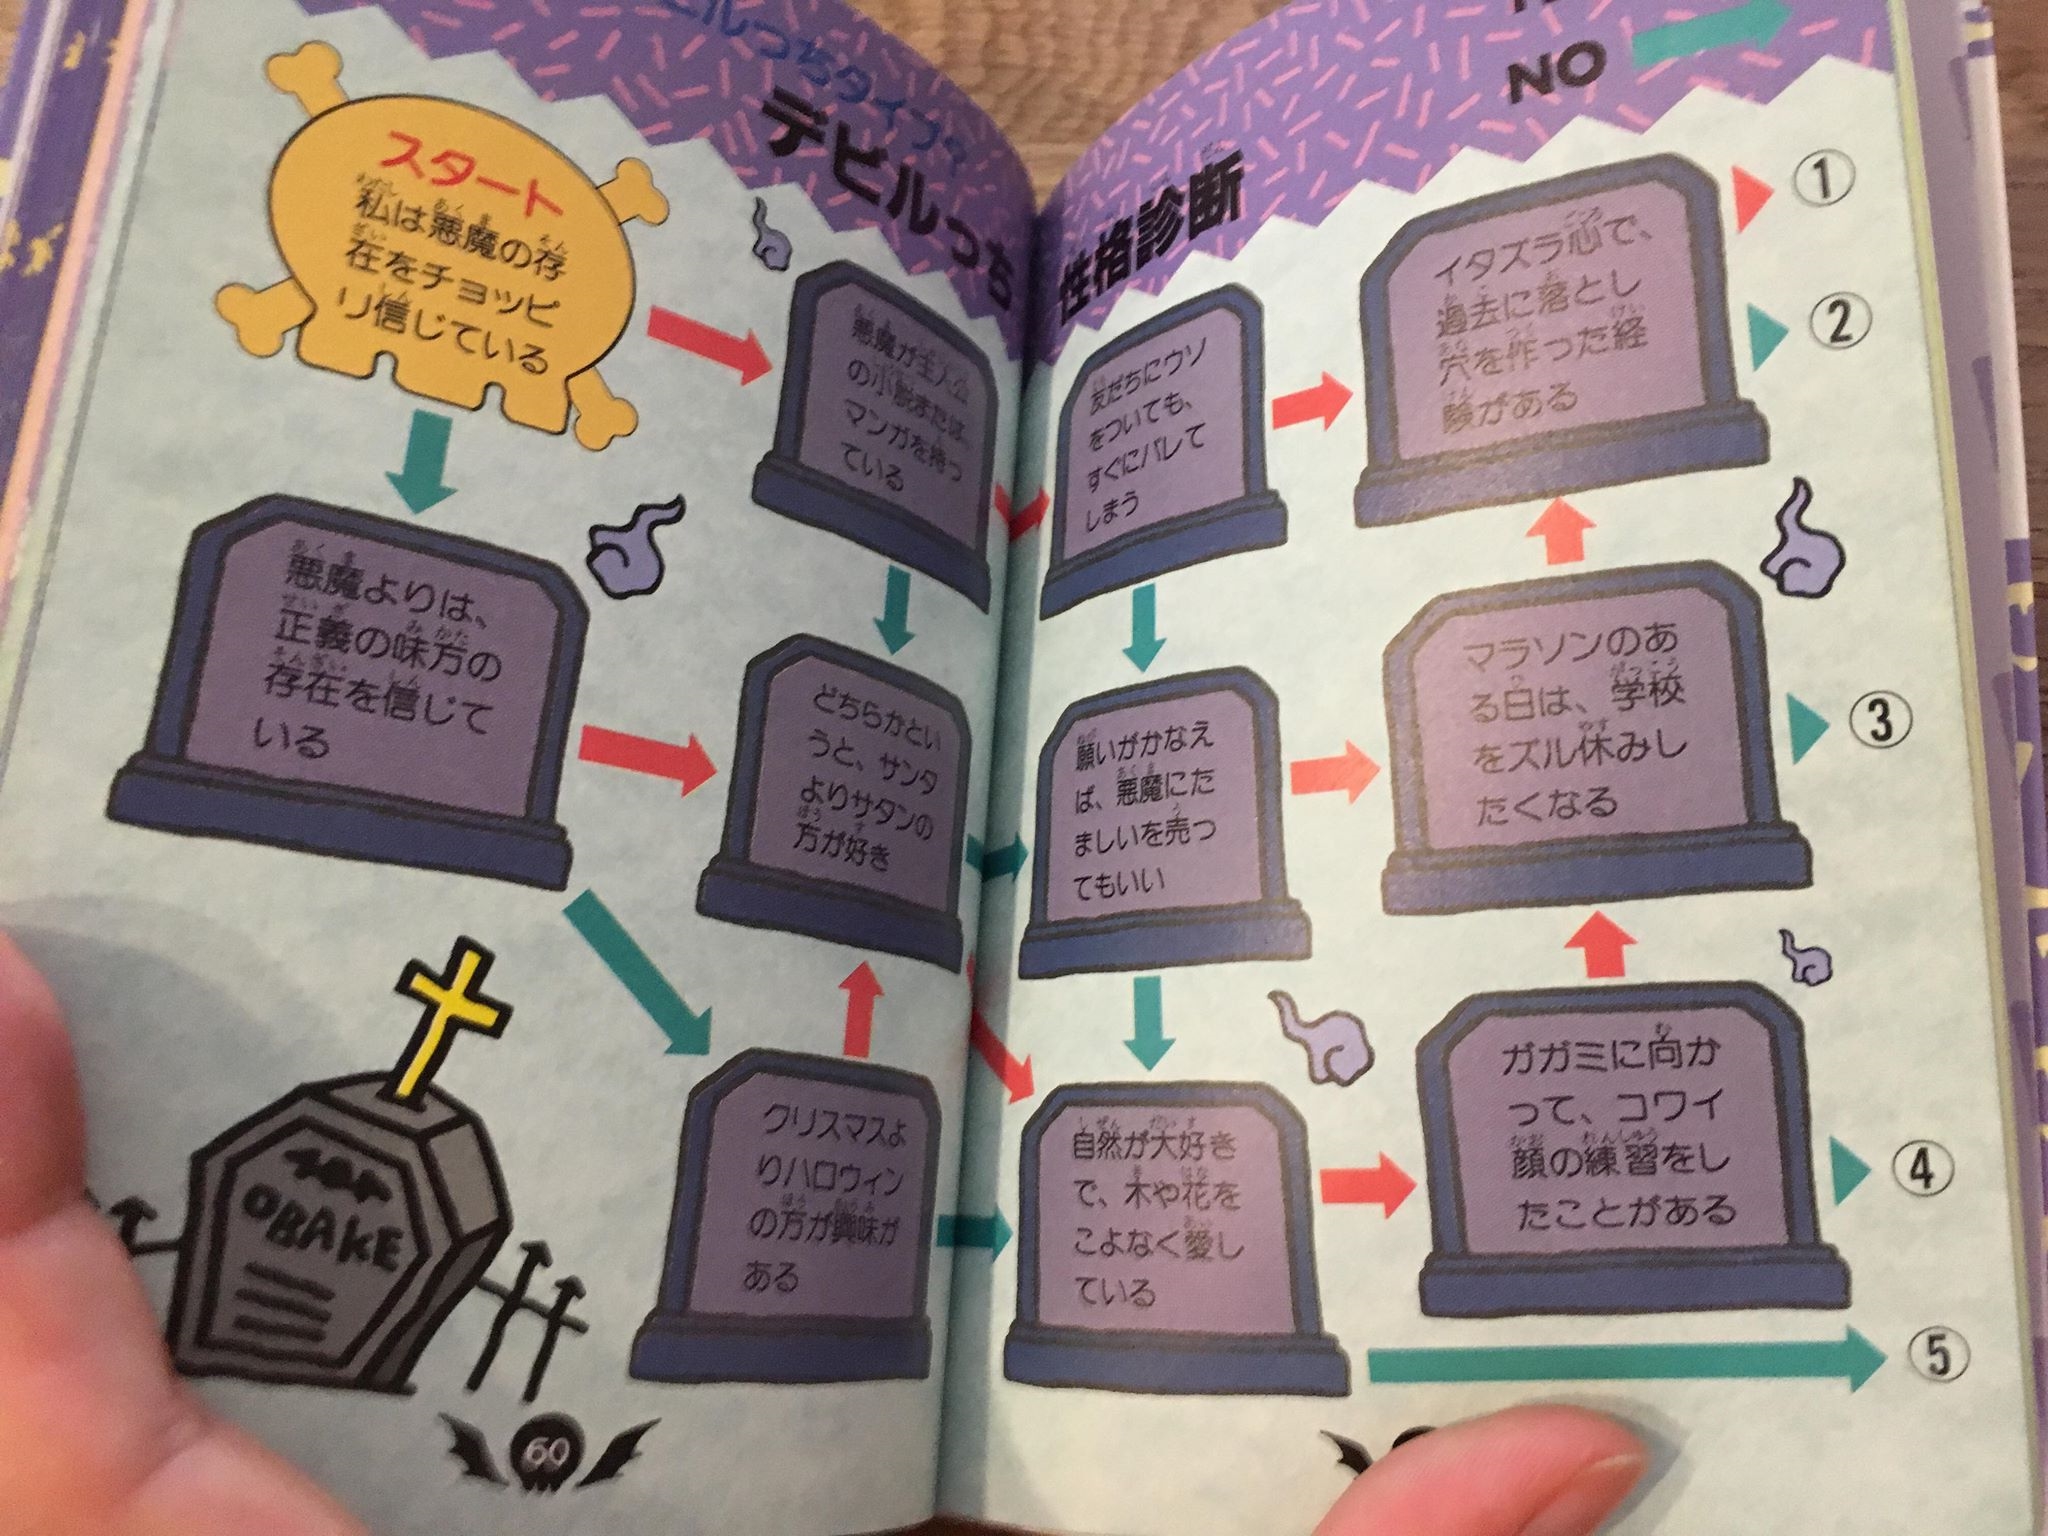 デビルっち
性格診断
NO
スタート
私は悪魔の存
在をチョッピ
リ信じている
悪魔が主人公
の小説または、
マンガを持っ
ている
友だちにウソ
をついても、
すぐにバレて
しまう
イタズラ心で、
過去に落とし
穴を作った経
験がある
①
②
悪魔よりは、
正義の味方の
存在を信じて
いる
どちらかとい
うと、サンタ
よりサタンの
方が好き
願いがかなえ
ば、悪魔にた
ましいを売っ
てもいい
マラソンのあ
る日は、学校
をズル休みし
たくなる
③
クリスマスよ
りハロウィン
の方が興味が
ある
自然が大好き
で、木や花を
こよなく愛し
ている
ガガミに向か
って、コワイ
顔の練習をし
たことがある
④
⑤
OBAKE
60